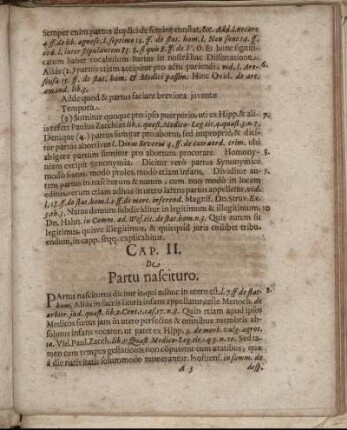 Semper enim partus duplici de semine constat, &c. Add. l. necare
4. ff. de lib. agnosc. l. septimo 12. ff. de stat. hom. l. Non sunt 14. ff.
eod. l. inter stipulantem 83. §. si quis 8. ff. de V. O. Et hunc significatum
habet vocabulum Partus in nostra hac Dissertatione.
Alias (2.) partus etiam accipitur pro actu pariendi: vid. l. Arescusa
15. ff. de stat. hom. & Medici passim. Hinc Ovid. de art.
amand. lib. 3.
Adde quod & partus faciant breviora juventæ
Tempora.
(3) Sumitur quoque pro ipso puerperio, uti ex Hipp. & aliis
refert Paulus Zacchias lib. 1. quæst. Medico-Legal. 
Denique (4.) partus sumitur pro aborsu, sed impropriè, & dicitur
partus abortivus
abigere partum simitur pro abortum procurare. Homonymiam
excipit Synonymia. Dicitur verò partus Synonymicè
modò fœtus, modò proles, modò etiam infans. Dividitur autem
partus in nasciturum & natum, cum non modò in lucem
editus, verum etiam adhuc in utero latens partus appelletur, vid.
Magnif. Dn. Struv. Ex.
3. th. 5. Natus denuò subdividitur in legitimum & illegitimum,
Dn. Hahn. in Comm. ad Wes. tit. de stat. hom. n. 5. Quis autem sit
legitimus, quisve illegitimus, & quicquid juris cuilibet tribuendum,
in capp. seqq. explicabitur.
CAP. II.
De
Partu nascituro.
PArtus nasciturus dicitur is, qui adhuc in utero est. l. 7. ff. de stat.
hom. Alias in sacris literis infans appellatur, teste Menoch. de
arbitr. jud. quæst. lib. 2. Quin etiam apud ipsos
Medicos fœtus jam in utero perfectus & omnibus membris absolutus
infans vocatur, ut patet ex Hipp. de morb. vulg.
Vid. Paul. Zacch. lib. 1. Quæst. Medico-Leg. Sed tamen
cum tempus gestationis non computur cum ætatibus, quæ
à die nativitatis solummodo numerantur. Hostiens. in summ. de
A 3